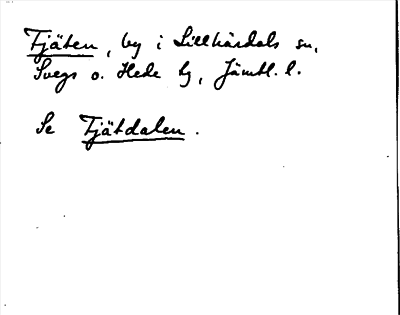 Tjäten, by i Lillhärdals sn,
Svegs o. Hede tg, Jämtl. l.
Se Tjätdalen.